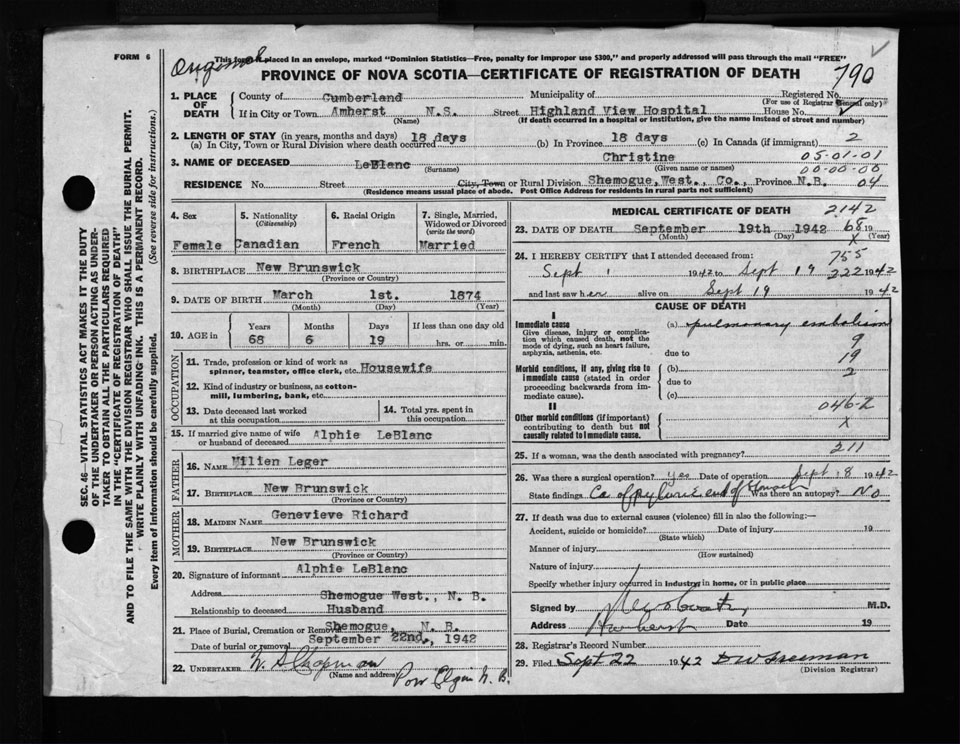 FORM 6
Original
This form if placed in an envelope, marked "Dominion Statistics—Free, penalty for improper use $300," and properly addressed will pass through the mail "FREE"
PROVINCE OF NOVA SCOTIA—CERTIFICATE OF REGISTRATION OF DEATH
790
SEC. 46—VITAL STATISTICS ACT MAKES IT THE DUTY
OF THE UNDERTAKER OR PERSON ACTING AS UNDER-
TAKER TO OBTAIN ALL THE PARTICULARS REQUIRED
IN THE "CERTIFICATE OF REGISTRATION OF DEATH"
AND TO FILE THE SAME WITH THE DIVISION REGISTRAR WHO SHALL ISSUE THE BURIAL PERMIT.
WRITE PLAINLY WITH UNFADING INK. THIS IS A PERMANENT RECORD.
Every item of information should be carefully supplied. (See reverse side for instructions.)
1. PLACE OF DEATH
County of Cumberland Municipality of Registered No.
(For use of Registrar General only)
If in City or Town Amherst N.S. Street Highland View Hospital House No.
(Name) (If death occurred in a hospital or institution, give the name instead of street and number)
2. LENGTH OF STAY (in years, months and days)
(a) In City, Town or Rural Division where death occurred 18 days (b) In Province 18 days (c) In Canada (if immigrant) 2
3. NAME OF DECEASED LeBlanc Christine 05-01-01
(Surname) (Given name or names) 00-00-00
RESIDENCE No. Street City, Town or Rural Division Shemogue, West., Co., Province N.B. 04
(Residence means usual place of abode. Post Office Address for residents in rural parts not sufficient)
4. Sex
Female
5. Nationality
(Citizenship)
Canadian
6. Racial Origin
French
7. Single, Married, Widowed or Divorced
(write the word)
Married
8. BIRTHPLACE New Brunswick
(Province or Country)
9. DATE OF BIRTH March 1st. 1874
(Month) (Day) (Year)
10. AGE in Years Months Days If less than one day old
68 6 19 hrs. or min.
OCCUPATION
11. Trade, profession or kind of work as
spinner, teamster, office clerk, etc. Housewife
12. Kind of industry or business, as cotton-
mill, lumbering, bank, etc.
13. Date deceased last worked
at this occupation
14. Total yrs. spent in
this occupation
15. If married give name of wife
or husband of deceased Alphie LeBlanc
FATHER
16. NAME Milien Leger
17. BIRTHPLACE New Brunswick
(Province or Country)
MOTHER
18. MAIDEN NAME Genevieve Richard
19. BIRTHPLACE New Brunswick
(Province or Country)
20. Signature of informant Alphie LeBlanc
Address Shemogue West., N. B.
Relationship to deceased Husband
21. Place of Burial, Cremation or Removal Shemogue, N. B.
Date of burial or removal September 22nd., 1942
22. UNDERTAKER W. S. Chapman
(Name and address) Port Elgin N. B.
MEDICAL CERTIFICATE OF DEATH 2142
23. DATE OF DEATH September 19th 1942 68
(Month) (Day) X (Year)
24. I HEREBY CERTIFY that I attended deceased from: 755
Sept 1 1942 to Sept 19 222 1942
and last saw her alive on Sept 19 1942
CAUSE OF DEATH
I
Immediate cause (a) pulmonary embolism
Give disease, injury or complica-
tion which caused death, not the
mode of dying, such as heart failure,
asphyxia, asthenia, etc.
due to
9
19
Morbid conditions, if any, giving rise to
immediate cause (stated in order
proceeding backwards from im-
mediate cause).
(b) 2
due to
(c)
II
Other morbid conditions (if important)
contributing to death but not
causally related to immediate cause.
046-2
X
25. If a woman, was the death associated with pregnancy? 211
26. Was there a surgical operation? Yes Date of operation Sept 18 1942
State findings Ca of pyloric end of stomach Was there an autopsy? No
27. If death was due to external causes (violence) fill in also the following:—
Accident, suicide or homicide? Date of injury 19
(State which)
Manner of injury
(How sustained)
Nature of injury
Specify whether injury occurred in industry, in home, or in public place
Signed by M.D.
Address Amherst Date 19
28. Registrar's Record Number
29. Filed Sept 22 1942 D W Freeman
(Division Registrar)